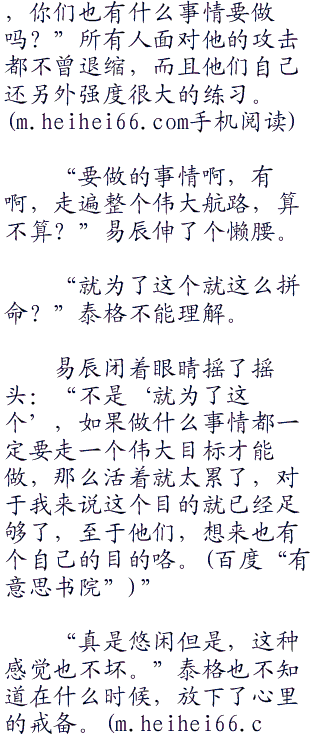 ，你们也有什么事情要做
吗？”所有人面对他的攻击
都不曾退缩，而且他们自己
还另外强度很大的练习。
(m.heihei66.com手机阅读)
“要做的事情啊，有
啊，走遍整个伟大航路，算
不算？”易辰伸了个懒腰。
“就为了这个就这么拼
命？”泰格不能理解。
易辰闭着眼睛摇了摇
头：“不是‘就为了这
个’，如果做什么事情都一
定要走一个伟大目标才能
做，那么活着就太累了，对
于我来说这个目的就已经足
够了，至于他们，想来也有
个自己的目的咯。(百度“有
意思书院”)”
“真是悠闲但是，这种
感觉也不坏。”泰格也不知
道在什么时候，放下了心里
的戒备。(m.heihei66.c